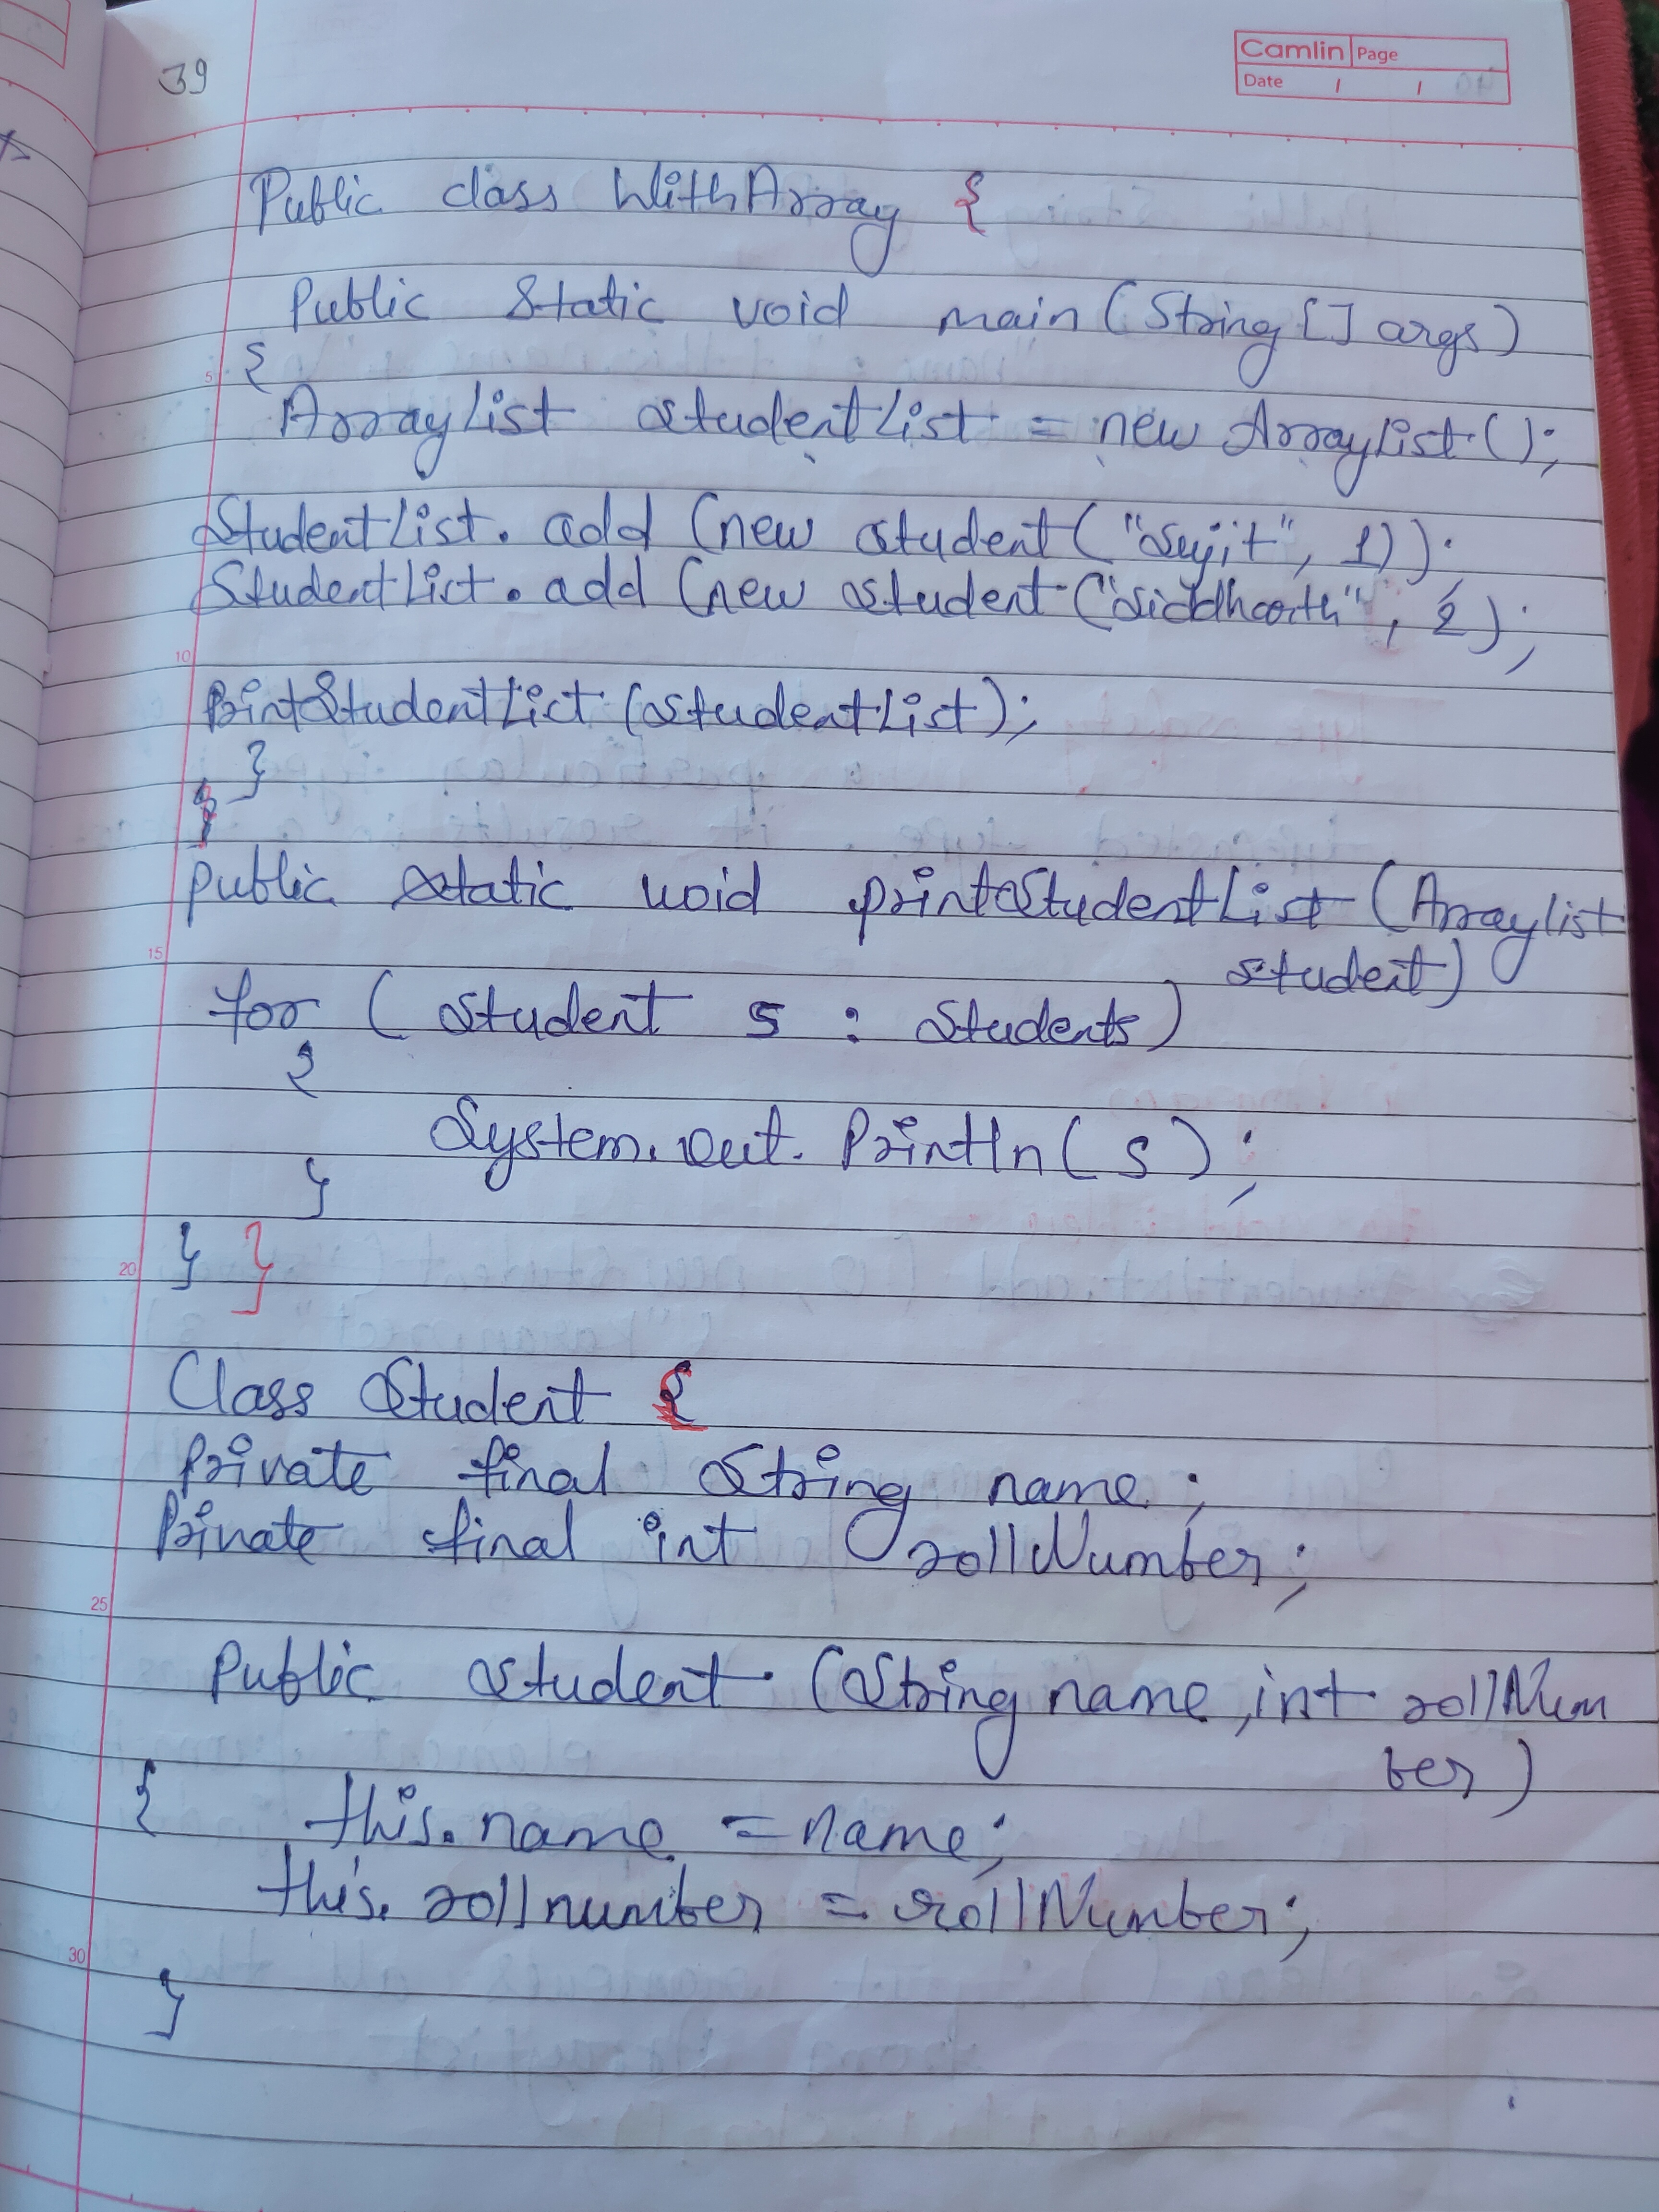 39
Camlin Page
Date / /
Public class WithArray {
Public Static void main (String [] args)
5 {
ArrayList studentList = new ArrayList();
StudentList. add (new student ("Sujit", 1));
StudentList. add (new student ("Siddharth", 2);
10
PrintStudentList (studentList);
}
}
public static void printStudentList (Arraylist
15 student)
for ( Student s : Students)
{
System. out. Println ( s ) ;
}
20 } }
Class Student {
Private final String name ;
Private final int rollNumber ;
25
Public Student (String name, int rollNum
ber )
{ this. name = name;
this. rollnumber = rollNumber;
30
}